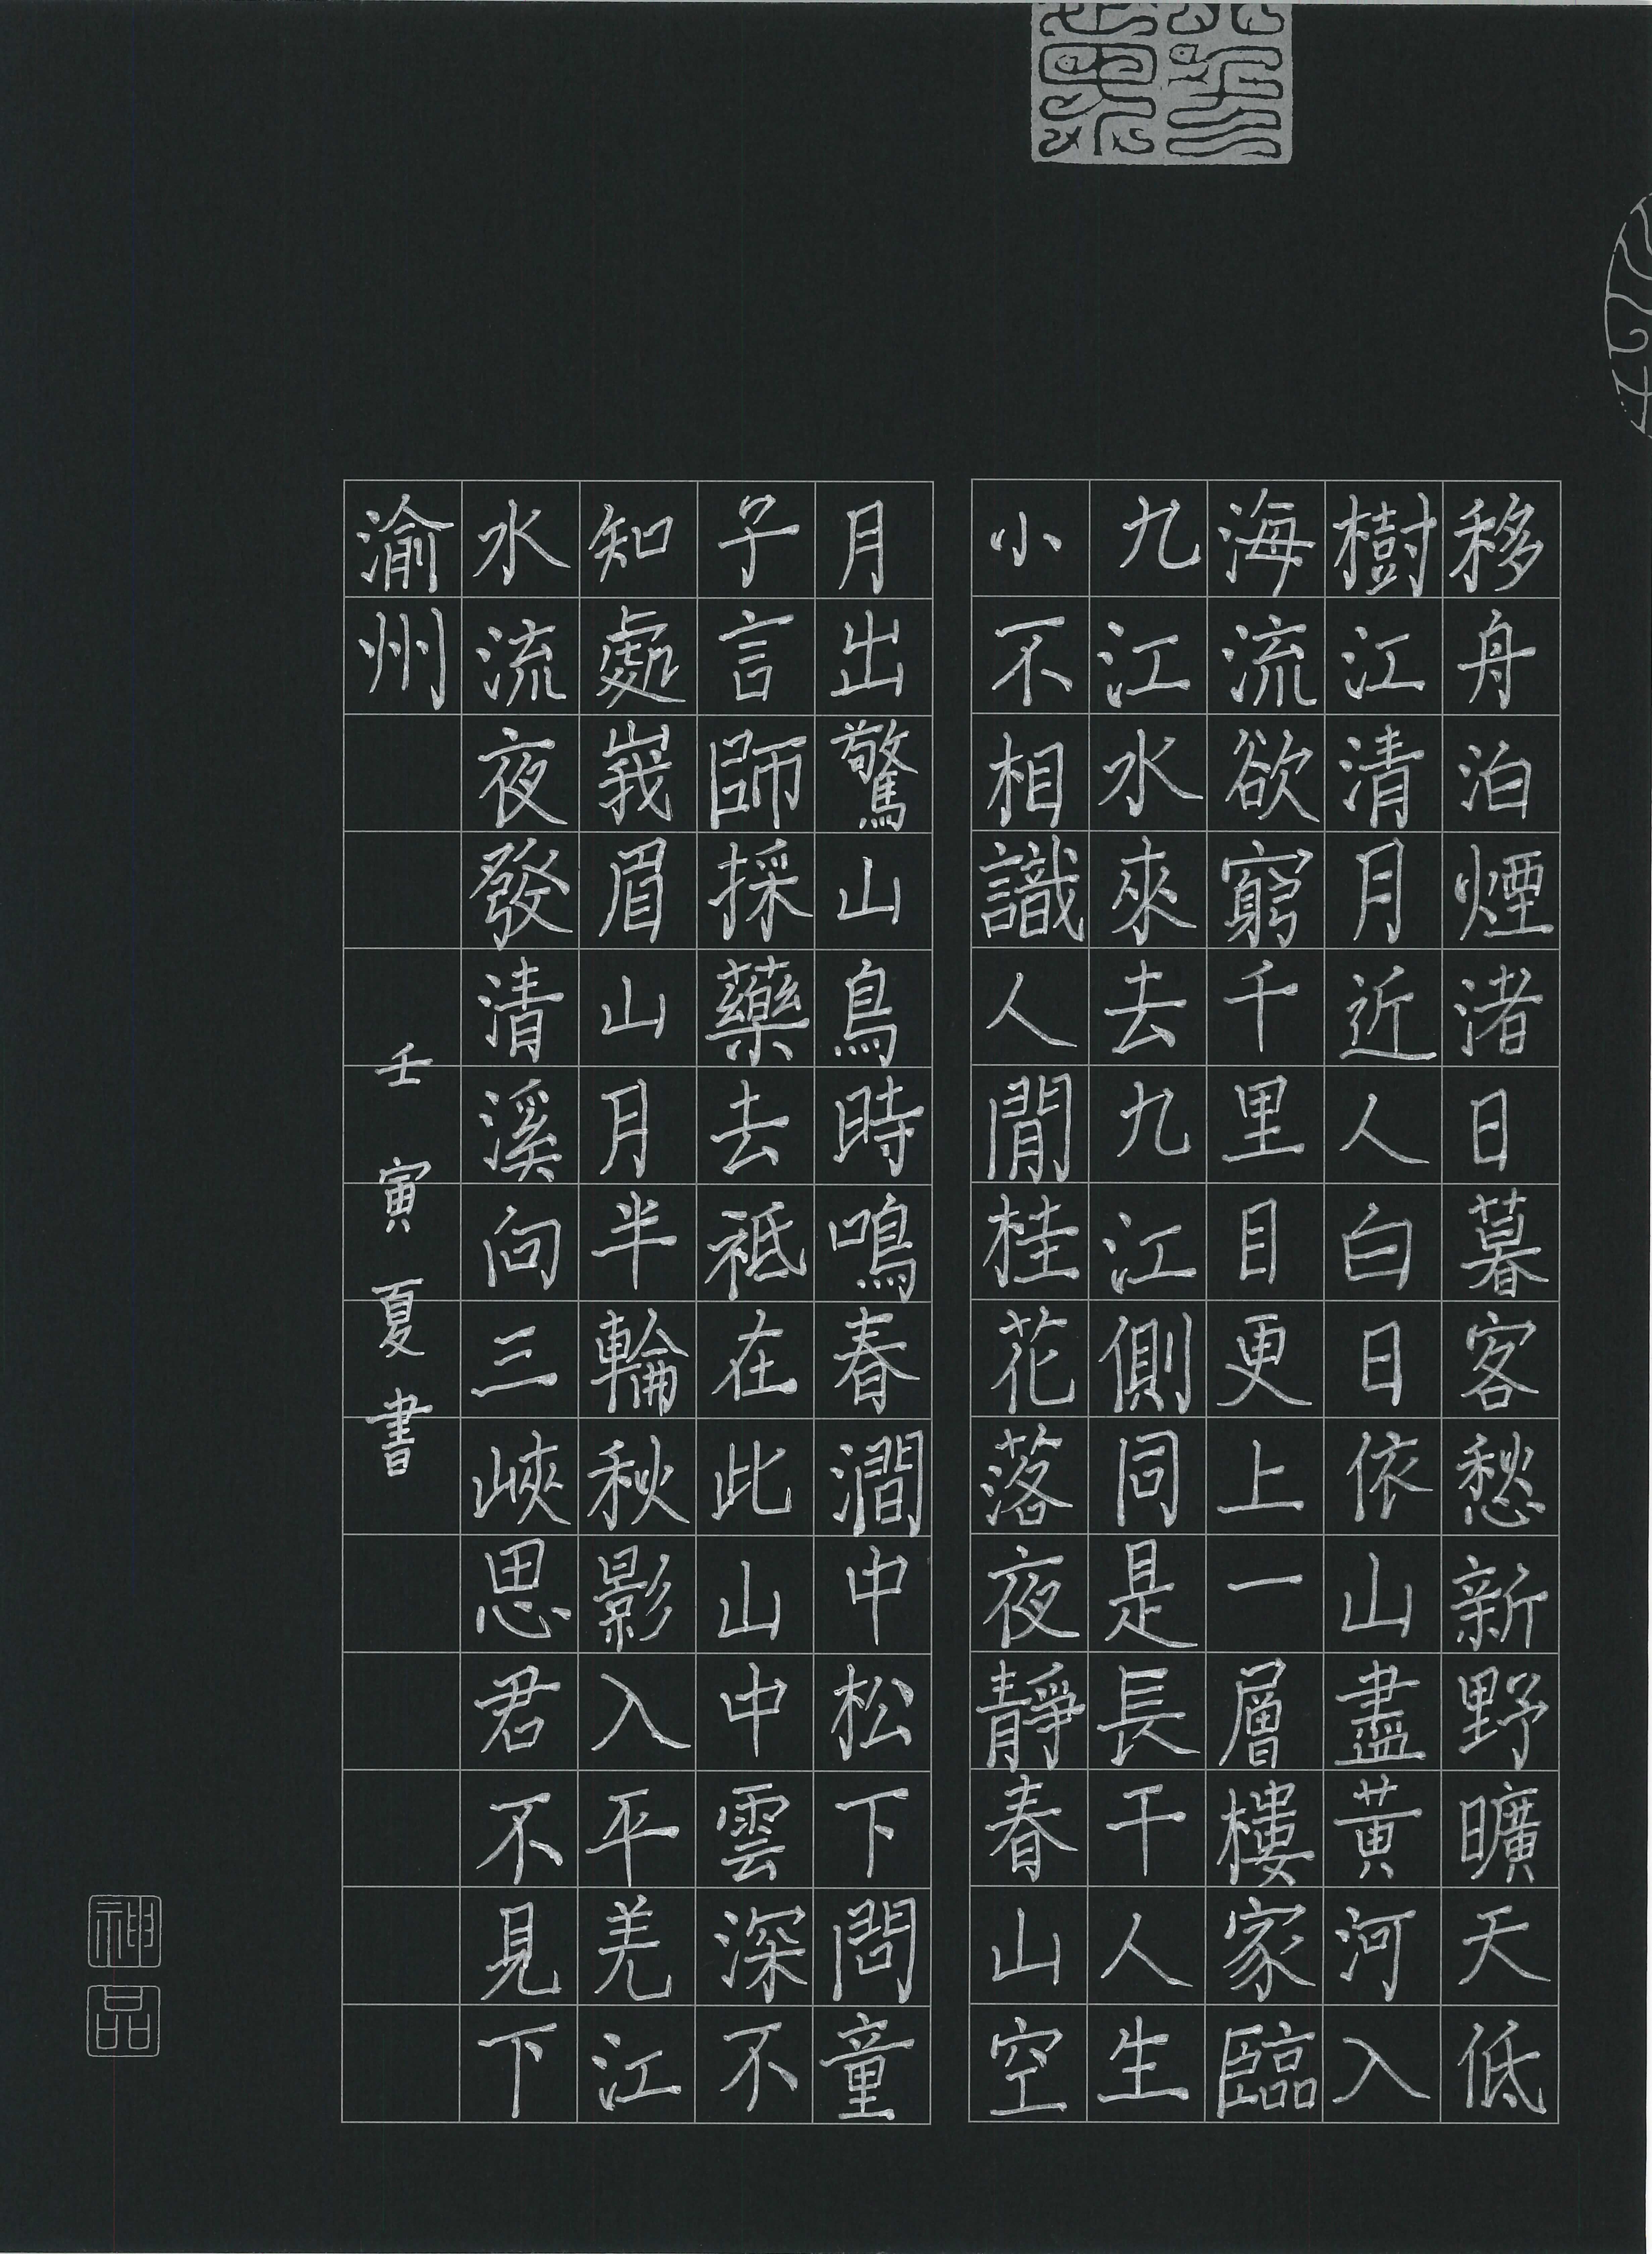 移舟泊煙渚日暮客愁新野曠天低
樹江清月近人白日依山盡黃河入
海流欲窮千里目更上一層樓家臨
九江水來去九江側同是長干人生
小不相識人閒桂花落夜靜春山空
月出驚山鳥時鳴春澗中松下問童
子言師採藥去祗在此山中雲深不
知處峩眉山月半輪秋影入平羌江
水流夜發清溪向三峽思君不見下
渝州
壬寅夏書
神品